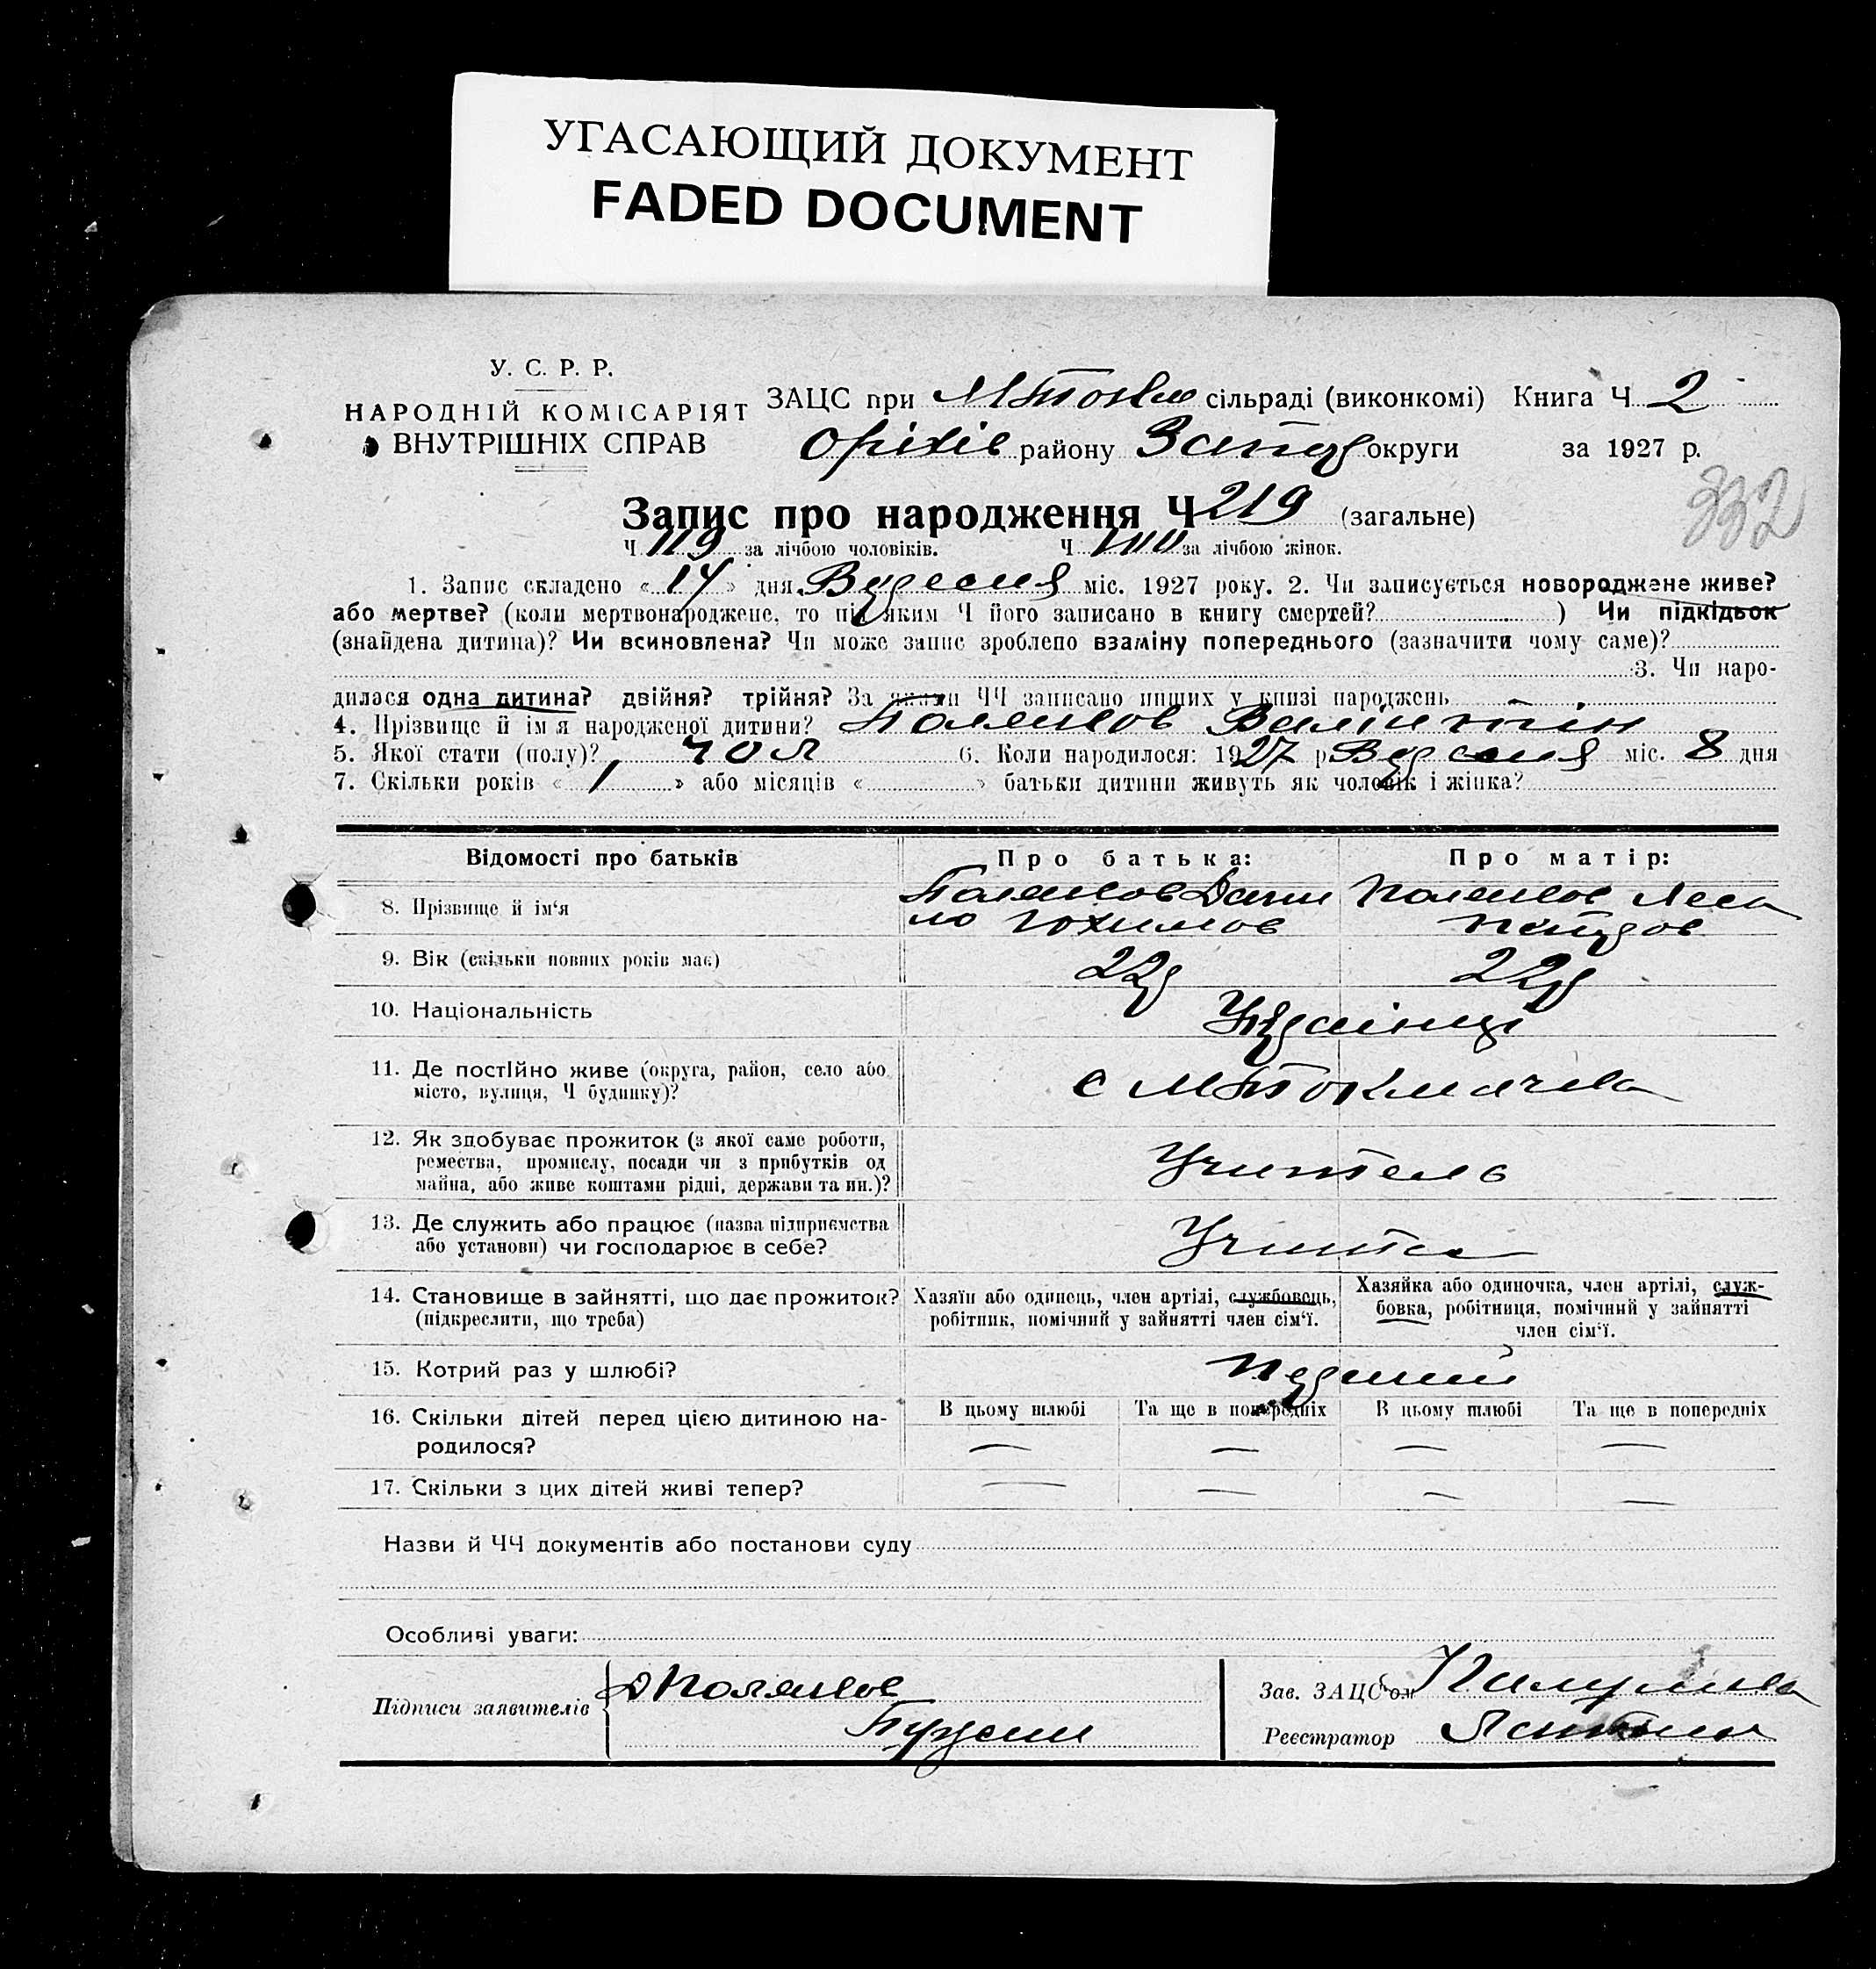 УГАСАЮЩИЙ ДОКУМЕНТ
FADED DOCUMENT
У. С. Р. Р.
НАРОДНІЙ КОМІСАРІЯТ
ВНУТРІШНІХ СПРАВ
ЗАЦС при сільраді (виконкомі) Книга Ч. 2
Оріхів району Запор округи за 1927 р.
332
Запис про народження Ч 219 (загальне)
Ч 119 за лічбою чоловіків. Ч за лічбою жінок.
1. Запис складено « 14 » дня Вересня міс. 1927 року. 2. Чи записується новороджене живе?
або мертве? (коли мертвонароджене, то під яким Ч його записано в книгу смертей? ) Чи підкідьок
(знайдена дитина)? Чи всиновлена? Чи може запис зроблено взаміну попереднього (зазначити чому саме)?
3. Чи наро-
дилася одна дитина? двійня? трійня? За якими ЧЧ записано инших у книзі народжень
4. Прізвище й ім'я народженої дитини? Поляков Валинтін
5. Якої стати (полу)? чол 6. Коли народилося: 1927 р Вересня міс. 8 дня
7. Скільки років « 1 » або місяців « » батьки дитини живуть як чоловік і жінка?
Відомості про батьків Про батька: Про матір:
8. Прізвище й ім'я Поляков Дани Поляков Леса
ло Юхимов Петров
9. Вік (скільки повних років має) 22р 22р
10. Національність Українці
11. Де постійно живе (округа, район, село або
місто, вулиця, Ч будинку)? с МТокмачка
12. Як здобуває прожиток (з якої саме роботи,
ремества, промислу, посади чи з прибутків од
майна, або живе коштами рідні, держави та ин.)? Учитель
13. Де служить або працює (назва підприємства
або установи) чи господарює в себе? Учител
14. Становище в зайнятті, що дає прожиток?
(підкреслити, що треба)
Хазяїн або одинець, член артілі, службовець,
робітник, помічний у зайнятті член сім'ї.
Хазяйка або одиночка, член артілі, служ-
бовка, робітниця, помічний у зайнятті
член сім'ї.
15. Котрий раз у шлюбі? Перший
16. Скільки дітей перед цією дитиною на-
родилося?
В цьому шлюбі Та ще в попередніх В цьому шлюбі Та ще в попередніх
— — — —
17. Скільки з цих дітей живі тепер? — — — —
Назви й ЧЧ документів або постанови суду
Особливі уваги:
Підписи заявителів ДПоляков
Зав. ЗАЦС'ом
Реєстратор